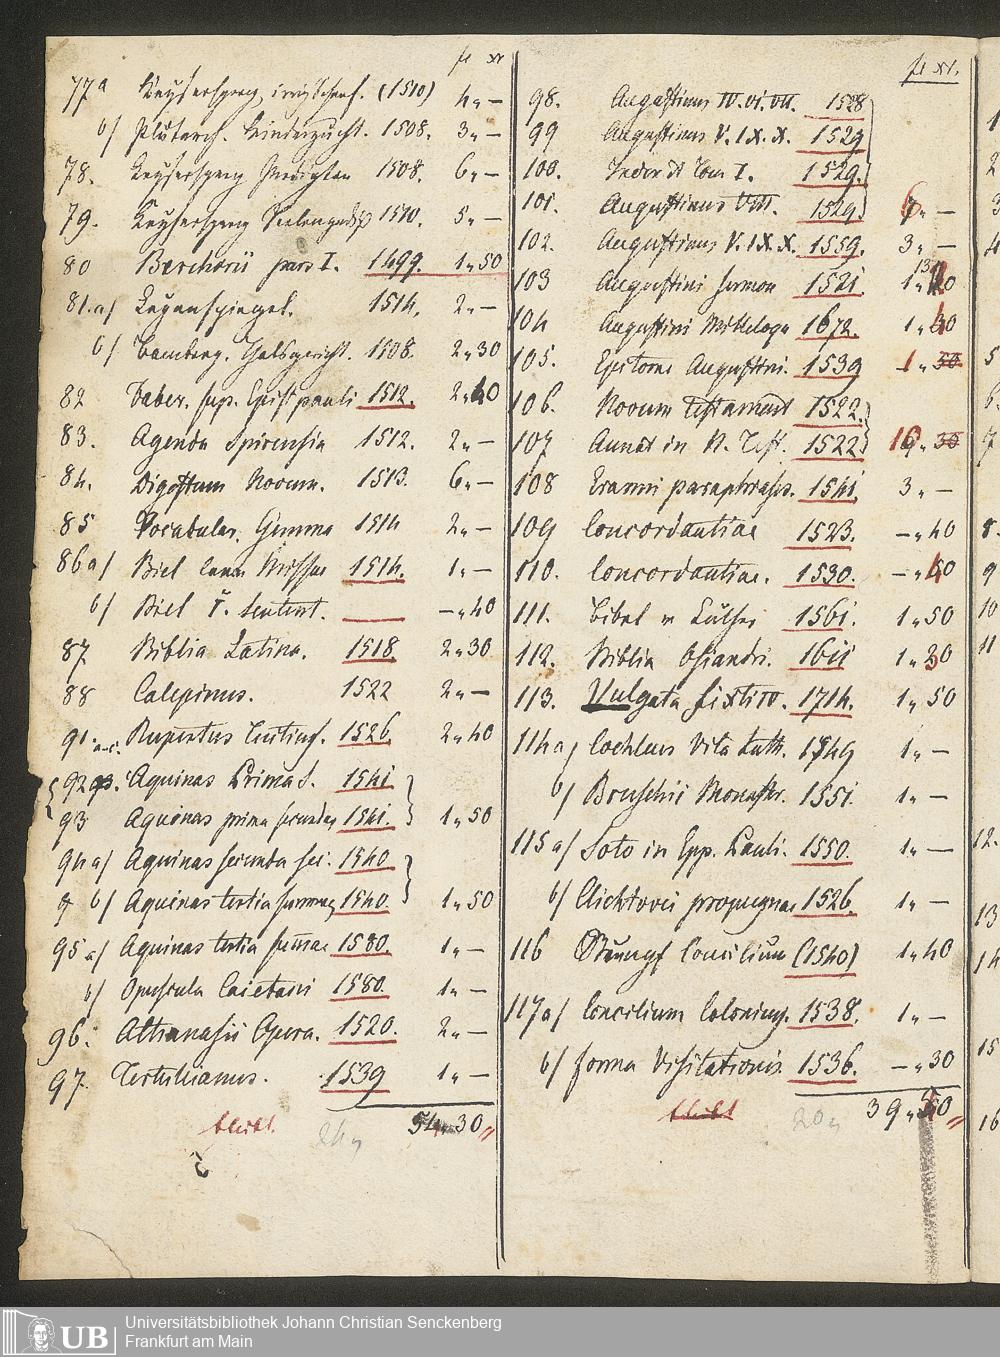 fl xr
77a Keysersperg, irrig Schaf. (1510) 4 „ —
b/ Plutarch. Kinderzucht. 1508. 3 „ —
78. Keysersperg Predigten 1508. 6 „ —
79. Keysersperg 1510. 5 „ —
80 Berchorii pars I. 1499. 1 „ 50
81.a/ Layenspiegel. 1514. 2 „ —
b/ Bamberg. Halsgericht. 1508. 2 „ 30
82 Faber. sup. Epist pauli 1512. 2 „ 40
83. Agenda Spirensia 1512. 2 „ —
84. Digestum Novum. 1513. 6 „ —
85 Vocabular. Gemma 1514 2 „ —
86a/ Biel Canon Missae 1514. 1 „ —
b/ Biel sentent. — „ 40
87 Biblia Latina. 1518 2 „ 30
88 Calepinus. 1522 2 „ —
91. a-c. Rupertus Tuitins. 1526. 2 „ 40
92 Aquinas Prima S. 1541
93 Aquinas prima secundae 1541. 1 „ 50
94a/ Aquinas secunda sec. 1540
b/ Aquinas tertia summae 1540. 1 „ 50
95a/ Aquinas tertia summae 1580. 1 „ —
b/ Opuscula Caietani 1580. 1 „ —
96. Athanasii Opera. 1520. 2 „ —
97. Tertullianus. 1539 1 „ —
54 „ 30
24 „
fl xr.
98. Augustinus IV. VI. VII. 1528
99 Augustinus V. IX. X. 1529
100. Index et Tom I. 1529.
101. Augustinus VIII. 1529. 6 „ —
102. Augustinus V. IX. X. 1559. 3 „ —
103 Augustini sermon 1521.
104 Augustini Milleloqu 1672.
105. Epitome Augustini. 1539 1 „ 30
106. Novum Testament 1522.
107 Annot in N. Test. 1522
108 Erasmi paraphrases. 1541. 3 „ —
109 Concordantiae 1523. — „ 40
110. Concordantiae. 1530.
111. Bibel v Luther 1561. 1 „ 50
112. Biblia Osiandri. 1611
113. Vulgata Sixti IV. 1714. 1 „ 50
114a/ Cochleus Vita Luth. 1549 1 „ —
b/ Bruschii Monaster. 1551. 1 „ —
115a/ Soto in Epp. Pauli. 1550. 1 „ —
b/ Clichtovei propugnac 1526. 1 „ —
116 Stumpf Concilium (1540) 1 „ 40
117a/ Concilium Coloniens. 1538. 1 „ —
b/ forma Visitationis. 1536. — „ 30
20 „
1
2
3
4
5
6
7
8.
9
10
11
12.
13
14
15
16
UB
Universitätsbibliothek Johann Christian Senckenberg
Frankfurt am Main